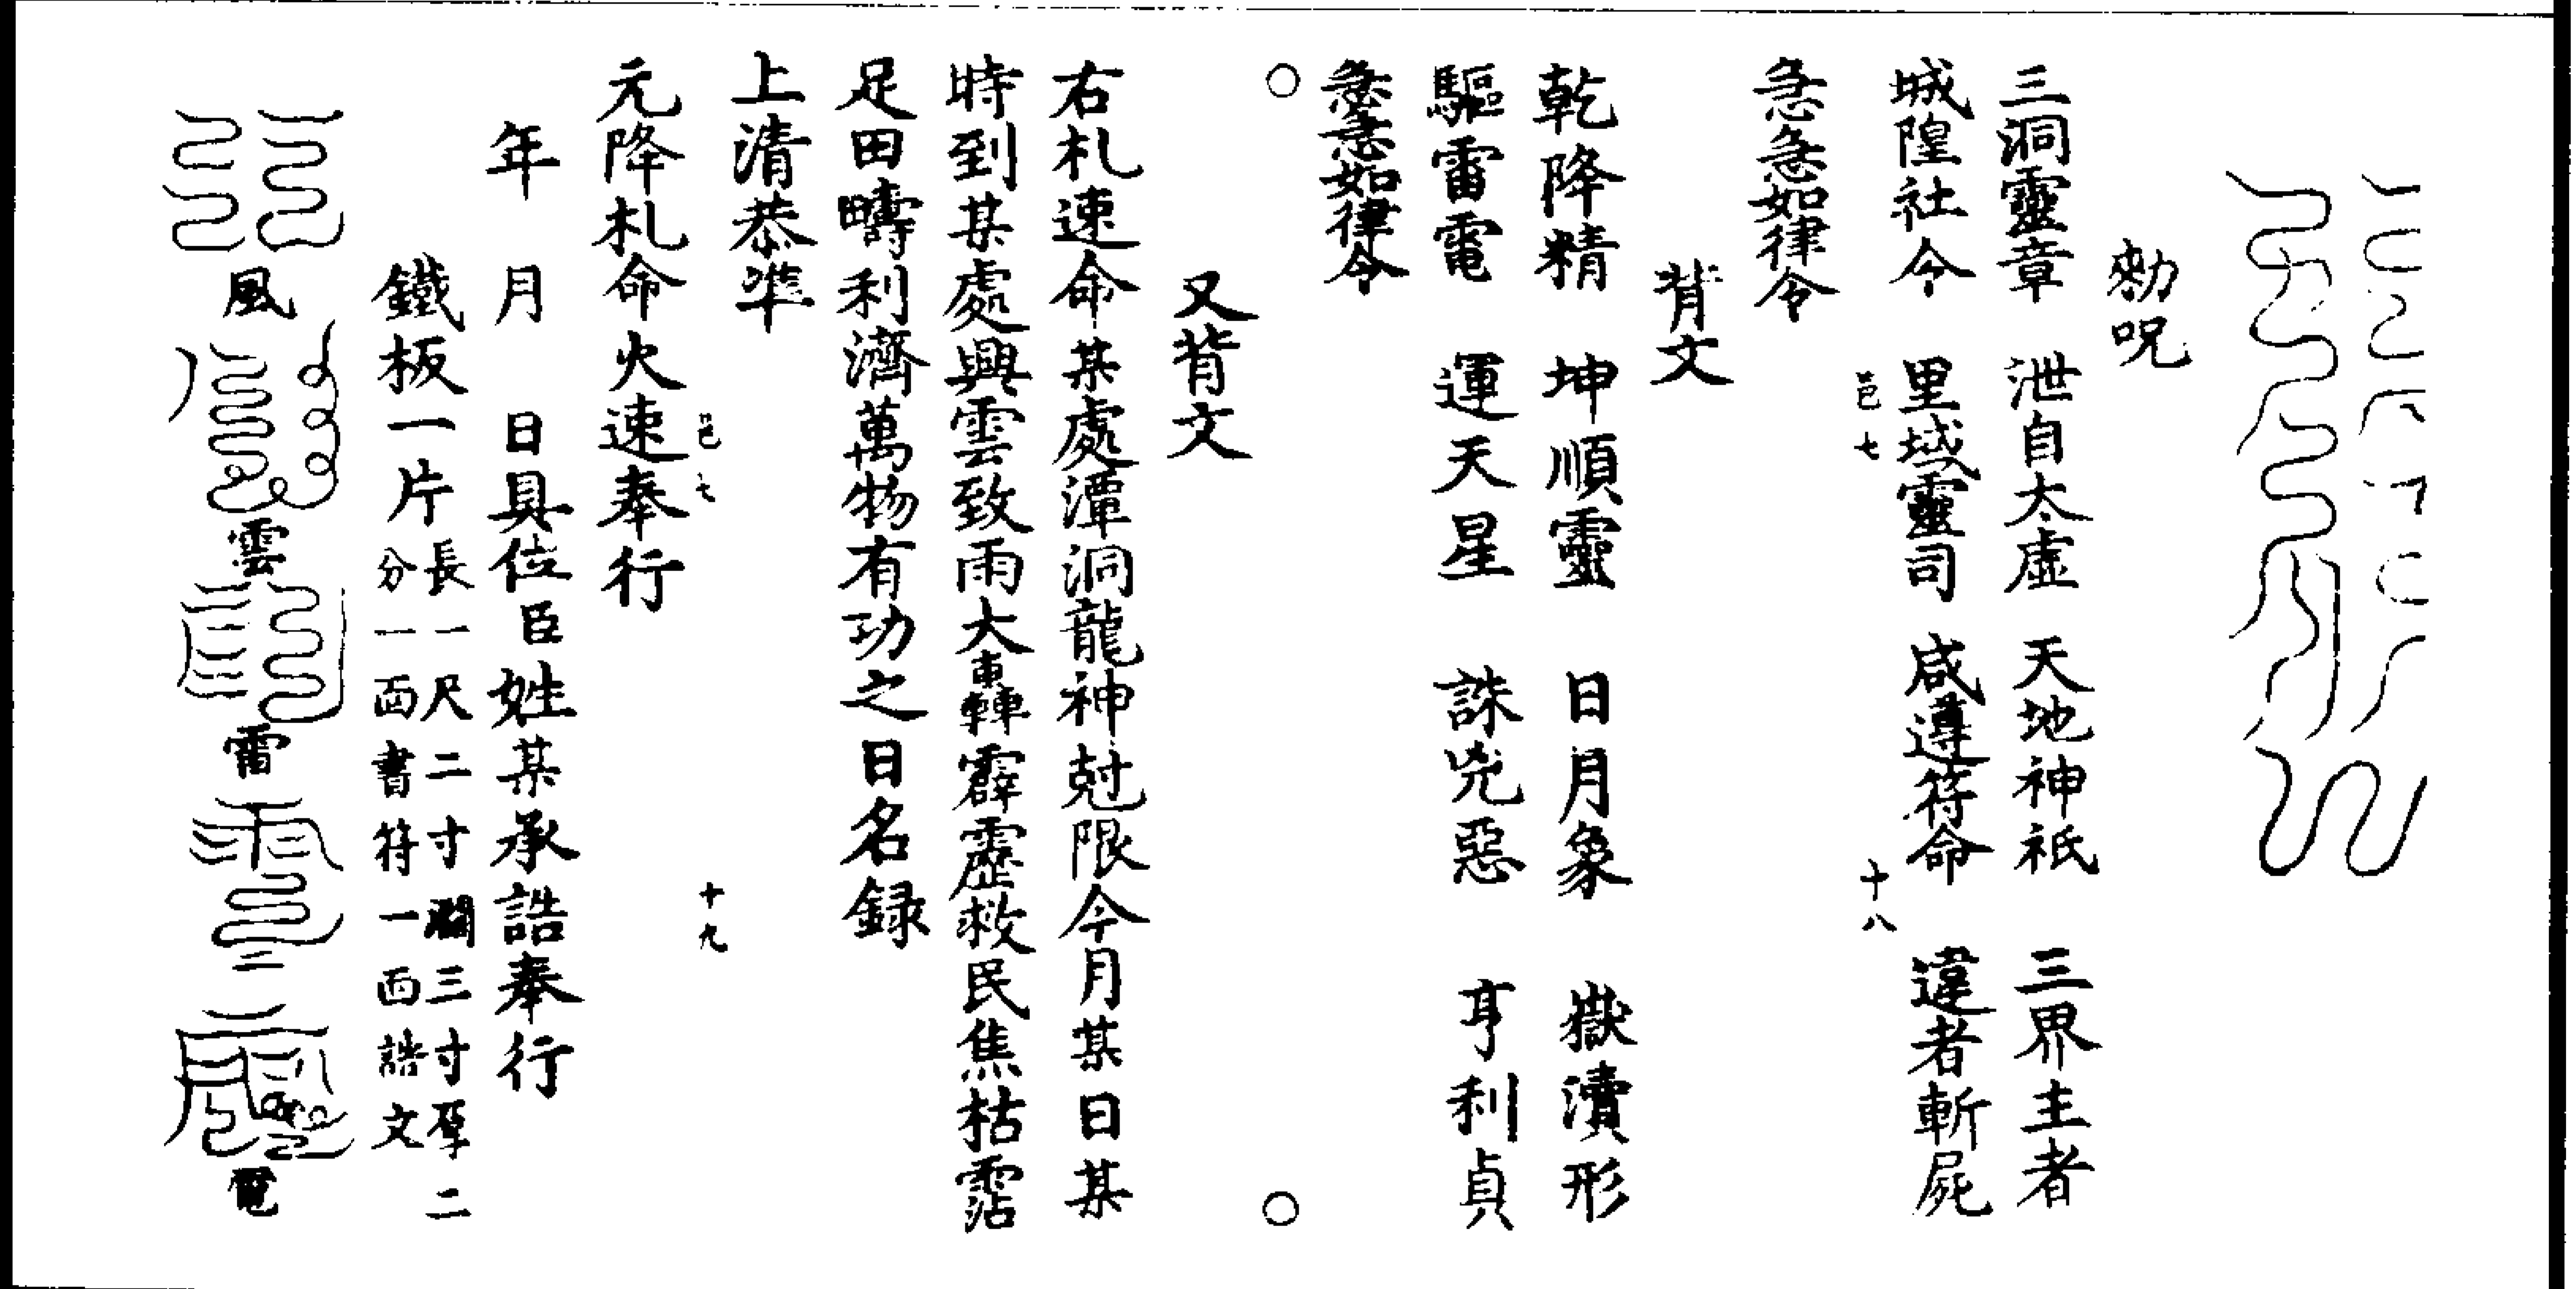 勑呪
三洞靈章　泄自太虛　天地神祇　三界主者
城隍社令　里域靈司　咸遵符命　違者斬屍
急急如律令
邑七　十八
背文
乾降精　坤順靈　日月象　嶽瀆形
驅雷電　運天星　誅兇惡　亨利貞
急急如律令
○　○
又背文
右札速命某處潭洞龍神尅限今月某日某
時到某處興雲致雨大轟霹靂救民焦枯霑
足田疇利濟萬物有功之日名録
上清恭準
邑七　十九
元降札命火速奉行
年　月　日具位臣姓某承誥奉行
鐵板一片長一尺二寸闊三寸厚二
分一面書符一面誥文
風
雲
雷
電